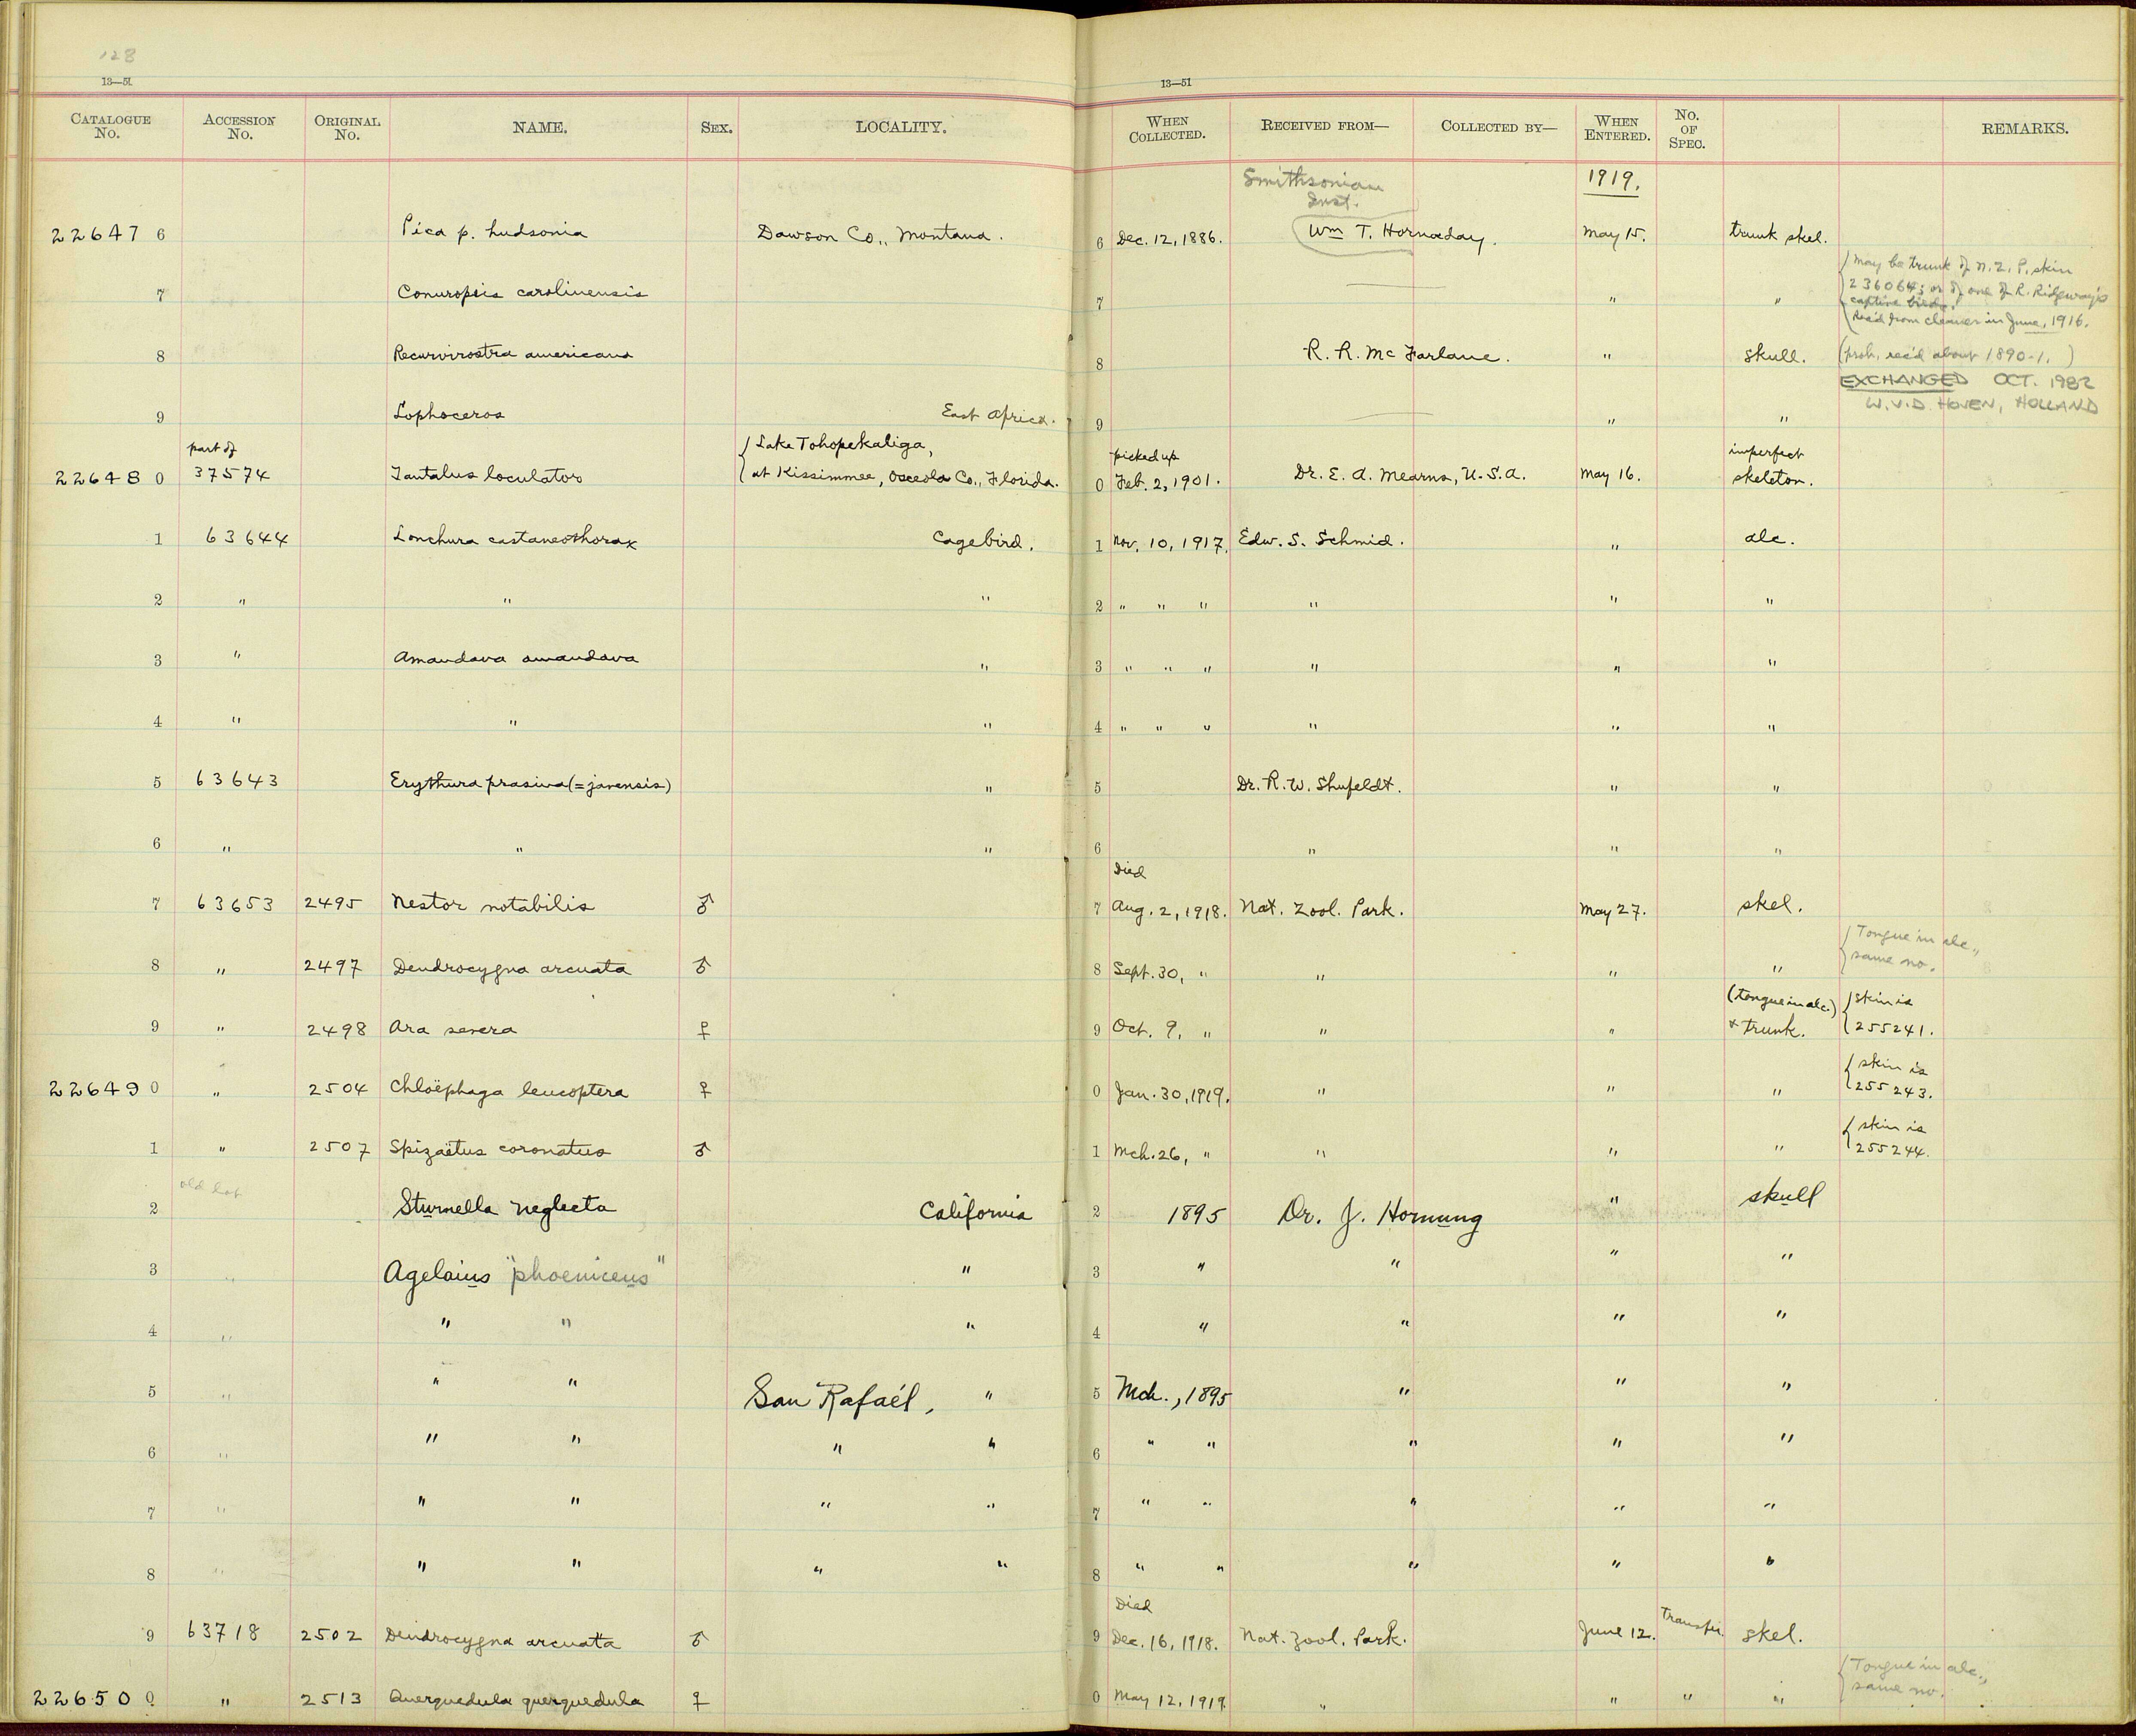 128
13—51 13—51
CATALOGUE No. ACCESSION No. ORIGINAL No. NAME. SEX. LOCALITY. WHEN COLLECTED. RECEIVED FROM— COLLECTED BY— WHEN ENTERED. No. OF SPEC. REMARKS.
Smithsonian Inst. 1919.
226476 Pica p. hudsonia Dawson Co., Montana. 6 Dec. 12, 1886. Wm T. Hornaday. May 15. trunk skel.
7 Conuropsis carolinensis 7 — " " { May be trunk of N.Z.P. skin
236064; or of one of R. Ridgway's
captive birds.
Rec'd from cleaner in June, 1916.
8 Recurvirostra americana 8 R. R. McFarlane. " skull. (prob. rec'd about 1890-1.)
EXCHANGED OCT. 1982
W.V.D. HOVEN, HOLLAND
9 Lophoceros East Africa. 9 — " "
part of { Lake Tohopekaliga, picked up imperfect
226480 37574 Tantalus loculator at Kissimmee, Osceola Co., Florida. 0 Feb. 2, 1901. Dr. E. A. Mearns, U.S.A. May 16. skeleton.
1 63644 Lonchura castaneothorax Cagebird. 1 Nov. 10, 1917. Edw. S. Schmid. " alc.
2 " " " 2 " " " " " "
3 " Amandava amandava " 3 " " " " " "
4 " " " 4 " " " " " "
5 63643 Erythura prasina (=javensis) " 5 Dr. R. W. Shufeldt. " "
6 " " " 6 " " "
Died
7 63653 2495 Nestor notabilis ♂ 7 Aug. 2, 1918. Nat. Zool. Park. May 27. skel.
8 " 2497 Dendrocygna arcuata ♂ 8 Sept. 30, " " " " { Tongue in alc., same no.
9 " 2498 Ara severa ♀ 9 Oct. 9, " " " (tongue in alc.) + trunk. { skin is 255241.
226490 " 2504 Chloëphaga leucoptera ♀ 0 Jan. 30, 1919. " " " { skin is 255243.
1 " 2507 Spizaëtus coronatus ♂ 1 Mch. 26, " " " " { skin is 255244.
2 old lot Sturnella neglecta California 2 1895 Dr. J. Hornung " skull
3 " Agelaius "phoeniceus" " 3 " " " "
4 " " " " 4 " " " "
5 " " " San Rafaél, " 5 Mch., 1895 " " "
6 " " " " " 6 " " " " "
7 " " " " " 7 " " " " "
8 " " " " " 8 " " " " "
Died
9 63718 2502 Dendrocygna arcuata ♂ 9 Dec. 16, 1918. Nat. Zool. Park. June 12. Transfer. skel.
226500 " 2513 Querquedula querquedula ♀ 0 May 12, 1919. " " " " { Tongue in alc., same no.